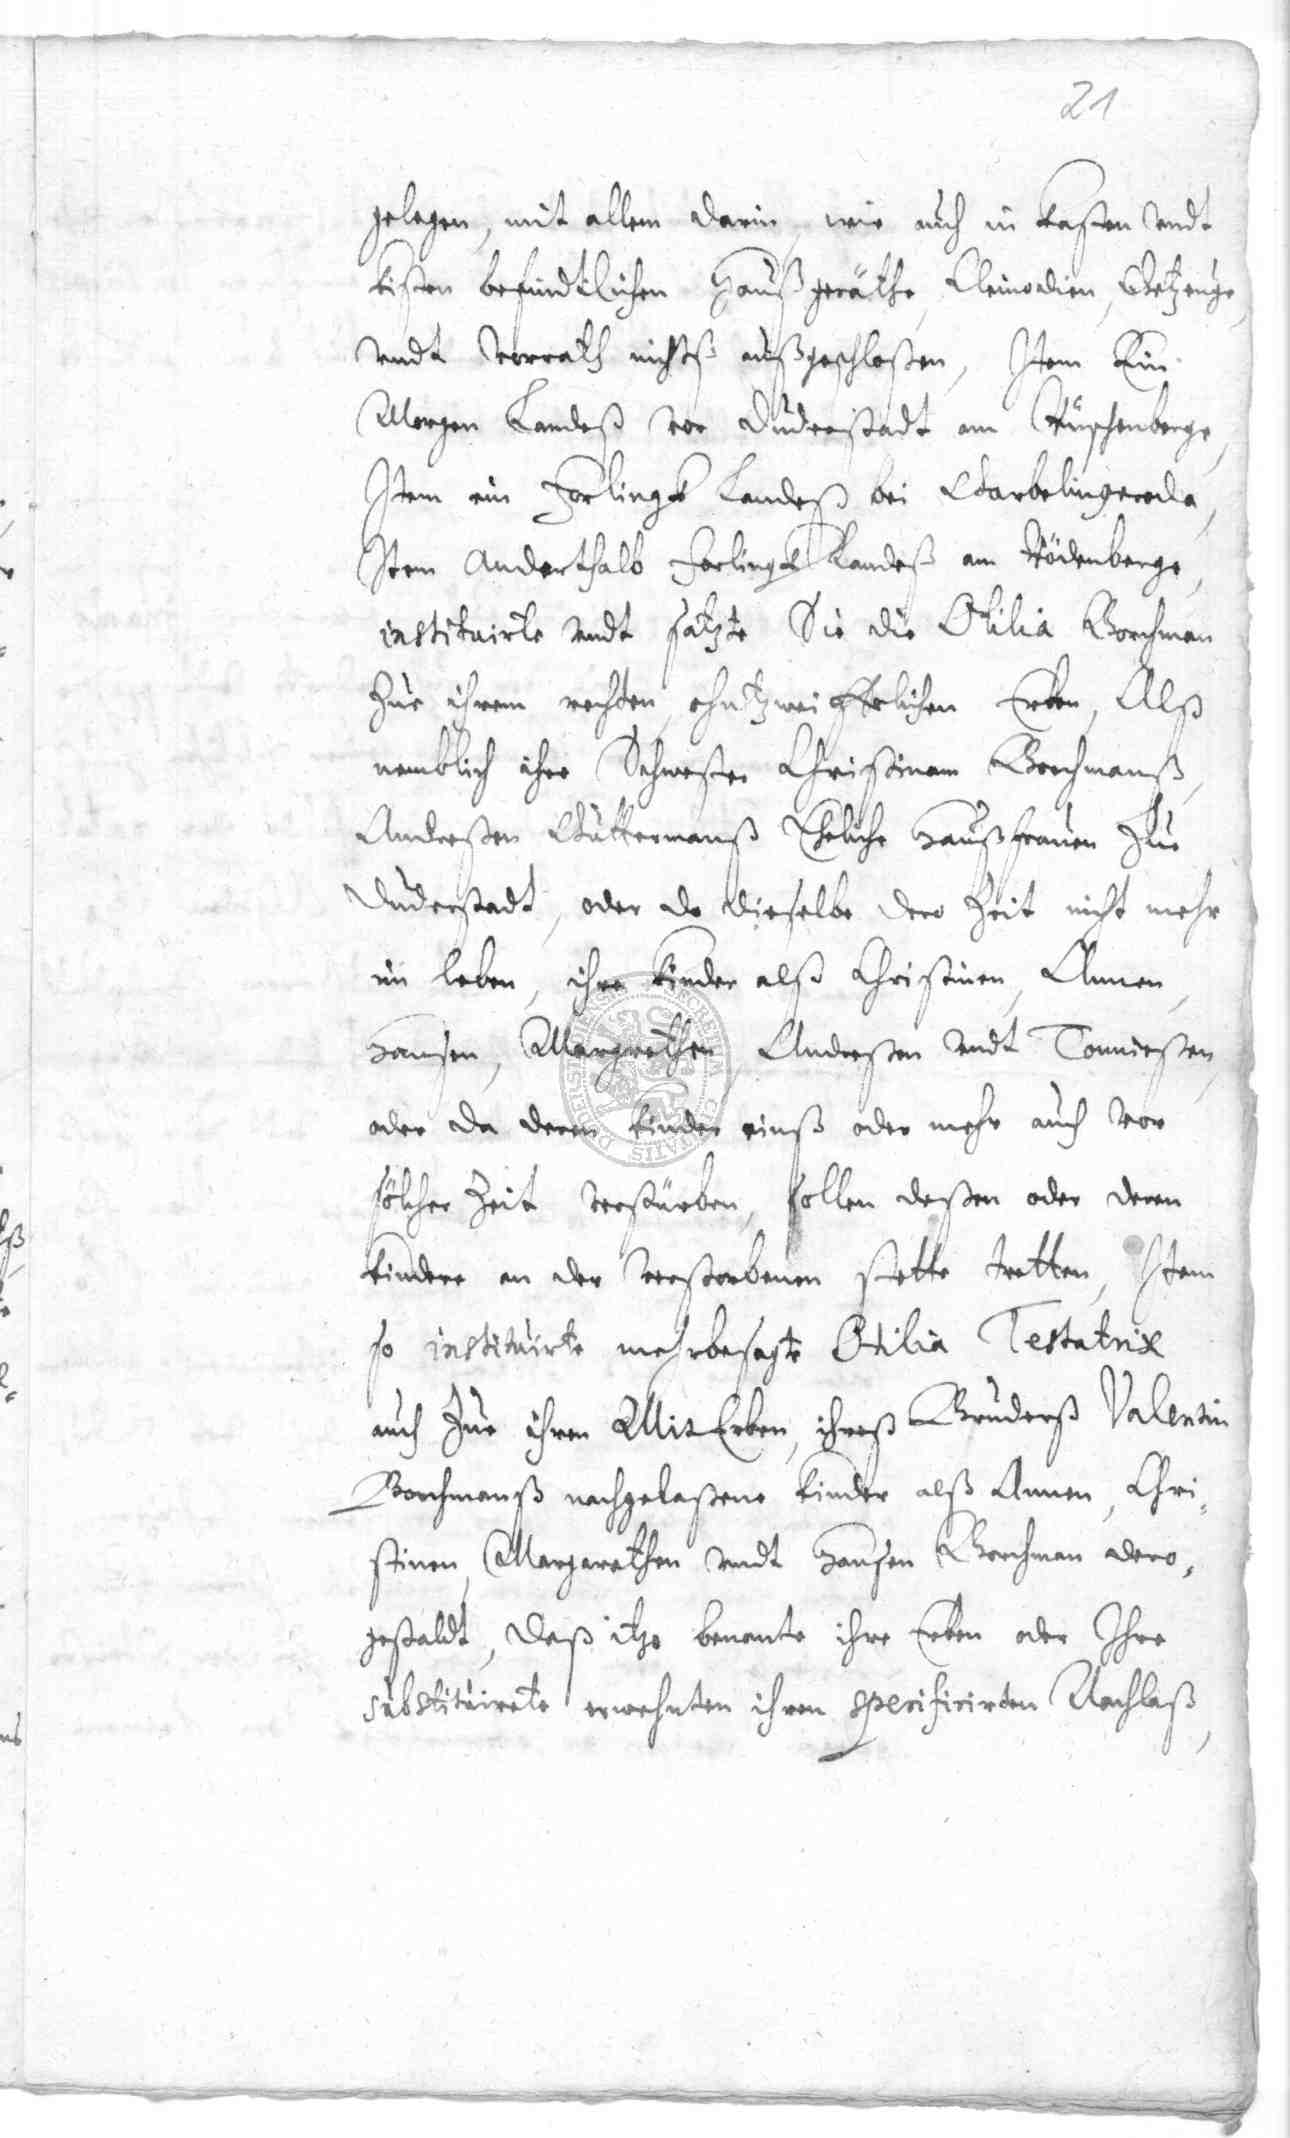 21
gelegen, mit allem darin, wie auch in kasten undt
kisten befindtlichen Haußgeräthe, Cleinodien, Getzeuge,
undt vorrath nichtß außgeschloßen, Item Ein
Morgen Landeß vor Duderstadt am Küschenberge,
Item ein Forlingk Landeß bei Werbelingeroda,
Item Anderthalb Forlingk Landeß am Rödenberge,
instituirte undt satzte Sie die Otilia Borchman
Zue ihrem rechten, ohntzweiffelichen Erben, Alß
nemblich ihre Schwester Christinam Borchmanß,
Andreßen Wüttermanß Eheliche Haußfrauen Zue
Duderstadt, oder do dieselbe dero Zeit nicht mehr
im leben, ihre kinder alß Christinen, Annen,
Hansen, Margrethen, Andreßen undt Tonnießen,
oder da deren kinder einß oder mehr auch vor
sölcher Zeit verstürben, sollen deßen oder deren
kindere an der verstorbenen stette tretten, Item
so instituirte mehrbesagte Otilia Testatrix
auch Zue ihren MitErben, ihreß Bruderß Valentin
Borchmanß nachgelaßene kinder alß Annen, Chri-
stinen, Margarethen undt Hansen Borchman dero-
gestaldt, daß itzo benante ihre Erben oder Ihre
substituirete erwehnten ihren specificirten Nachlaß,